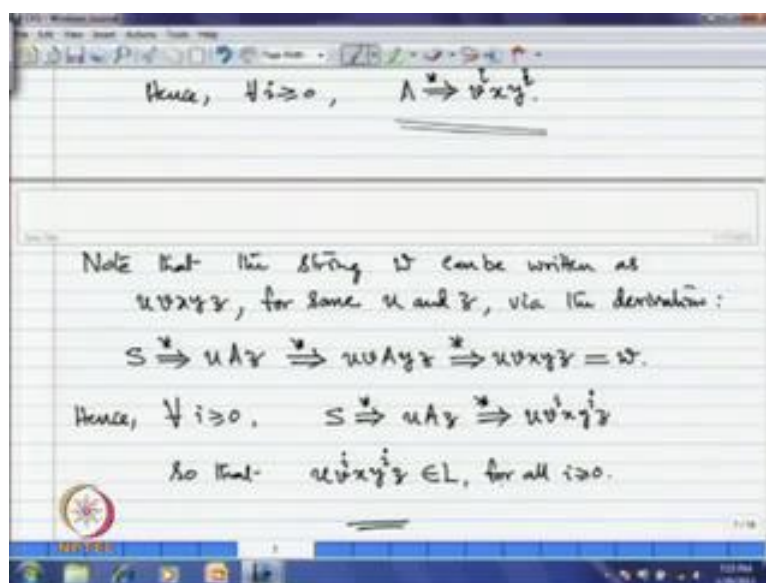 Hence, ∀ i ≥ 0, A ⇒* v^i x y^i.
Note that the string w can be written as
uvxyz, for some u and z, via the derivation:
S ⇒* uAz ⇒* uvAyz ⇒* uvxyz = w.
Hence, ∀ i ≥ 0, S ⇒* uAz ⇒* uv^i xy^i z
So that uv^i xy^i z ∈ L, for all i ≥ 0.
NPTEL